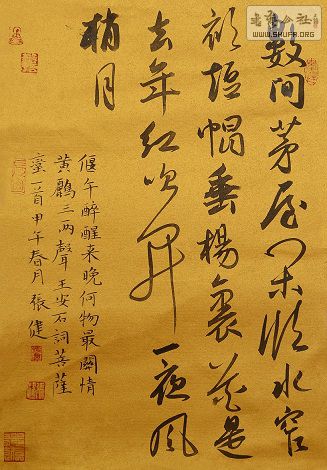 数间茅屋闲临水窄
衫短帽垂杨里花是
去年红吹开一夜风
梢月
偃午醉醒来晚何物最關情
黄鸝三兩聲王安石詞菩薩
蠻一首甲午春月張健
书法公社
WWW.SHUFA.ORG